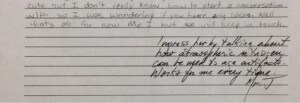 cute but I don't really know how to start a conversation
with so I was wondering if you have any ideas. Well
that's all for now Mr. J but we will keep in touch.
Impress her by talking about
how atmospheric nitrogen
can be used to age artifacts.
Works for me every time.